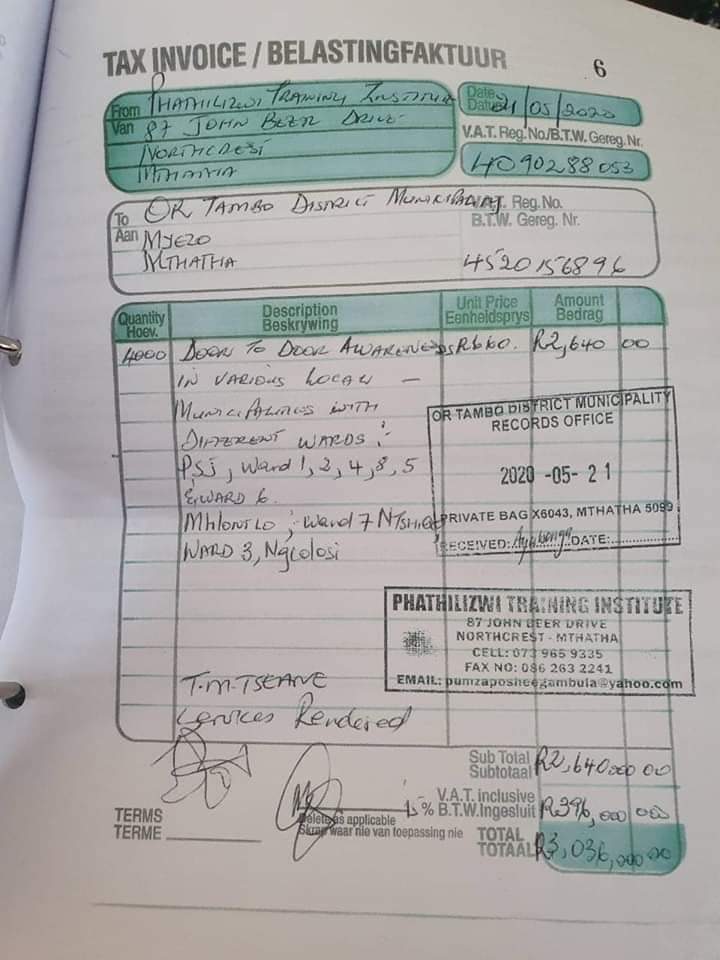 TAX INVOICE / BELASTINGFAKTUUR
6
From Van
PHATHILIZWI TRAINING INSTITUTE
87 JOHN BEER DRIVE
NORTHCREST
MTHATHA
Date Datum 21/05/2020
V.A.T. Reg.No/B.T.W. Gereg.Nr.
4090288053
To Aan
OR TAMBO DISTRICT MUNICIPALIAT
MYEZO
MTHATHA
V.A.T. Reg. No.
B.T.W. Gereg. Nr.
4520156896
Quantity Hoev.
Description Beskrywing
Unit Price Eenheidsprys
Amount Bedrag
4000 DOOR TO DOOR AWARENESS R660. R2,640 00
IN VARIOUS LOCAL –
MUNICIPALITIES WITH
DIFFERENT WARDS :-
PSJ, Ward 1, 2, 4, 8, 5
& WARD 6
Mhlontlo ; Ward 7
WARD 3, Ngcolosi
OR TAMBO DISTRICT MUNICIPALITY
RECORDS OFFICE
2020 -05- 21
PRIVATE BAG X6043, MTHATHA 5099
RECEIVED: DATE:
PHATHILIZWI TRAINING INSTITUTE
87 JOHN BEER DRIVE
NORTHCREST - MTHATHA
CELL: 073 965 9335
FAX NO: 086 263 2241
EMAIL: pumzaposheegambula@yahoo.com
T.M.TSEANE
Services Rendered
Sub Total Subtotaal R2,640000 00
15% V.A.T. inclusive B.T.W. Ingesluit R396,000 00
Delete as applicable
Skrap waar nie van toepassing nie
TERMS
TERME
TOTAL TOTAAL R3,036,000 00